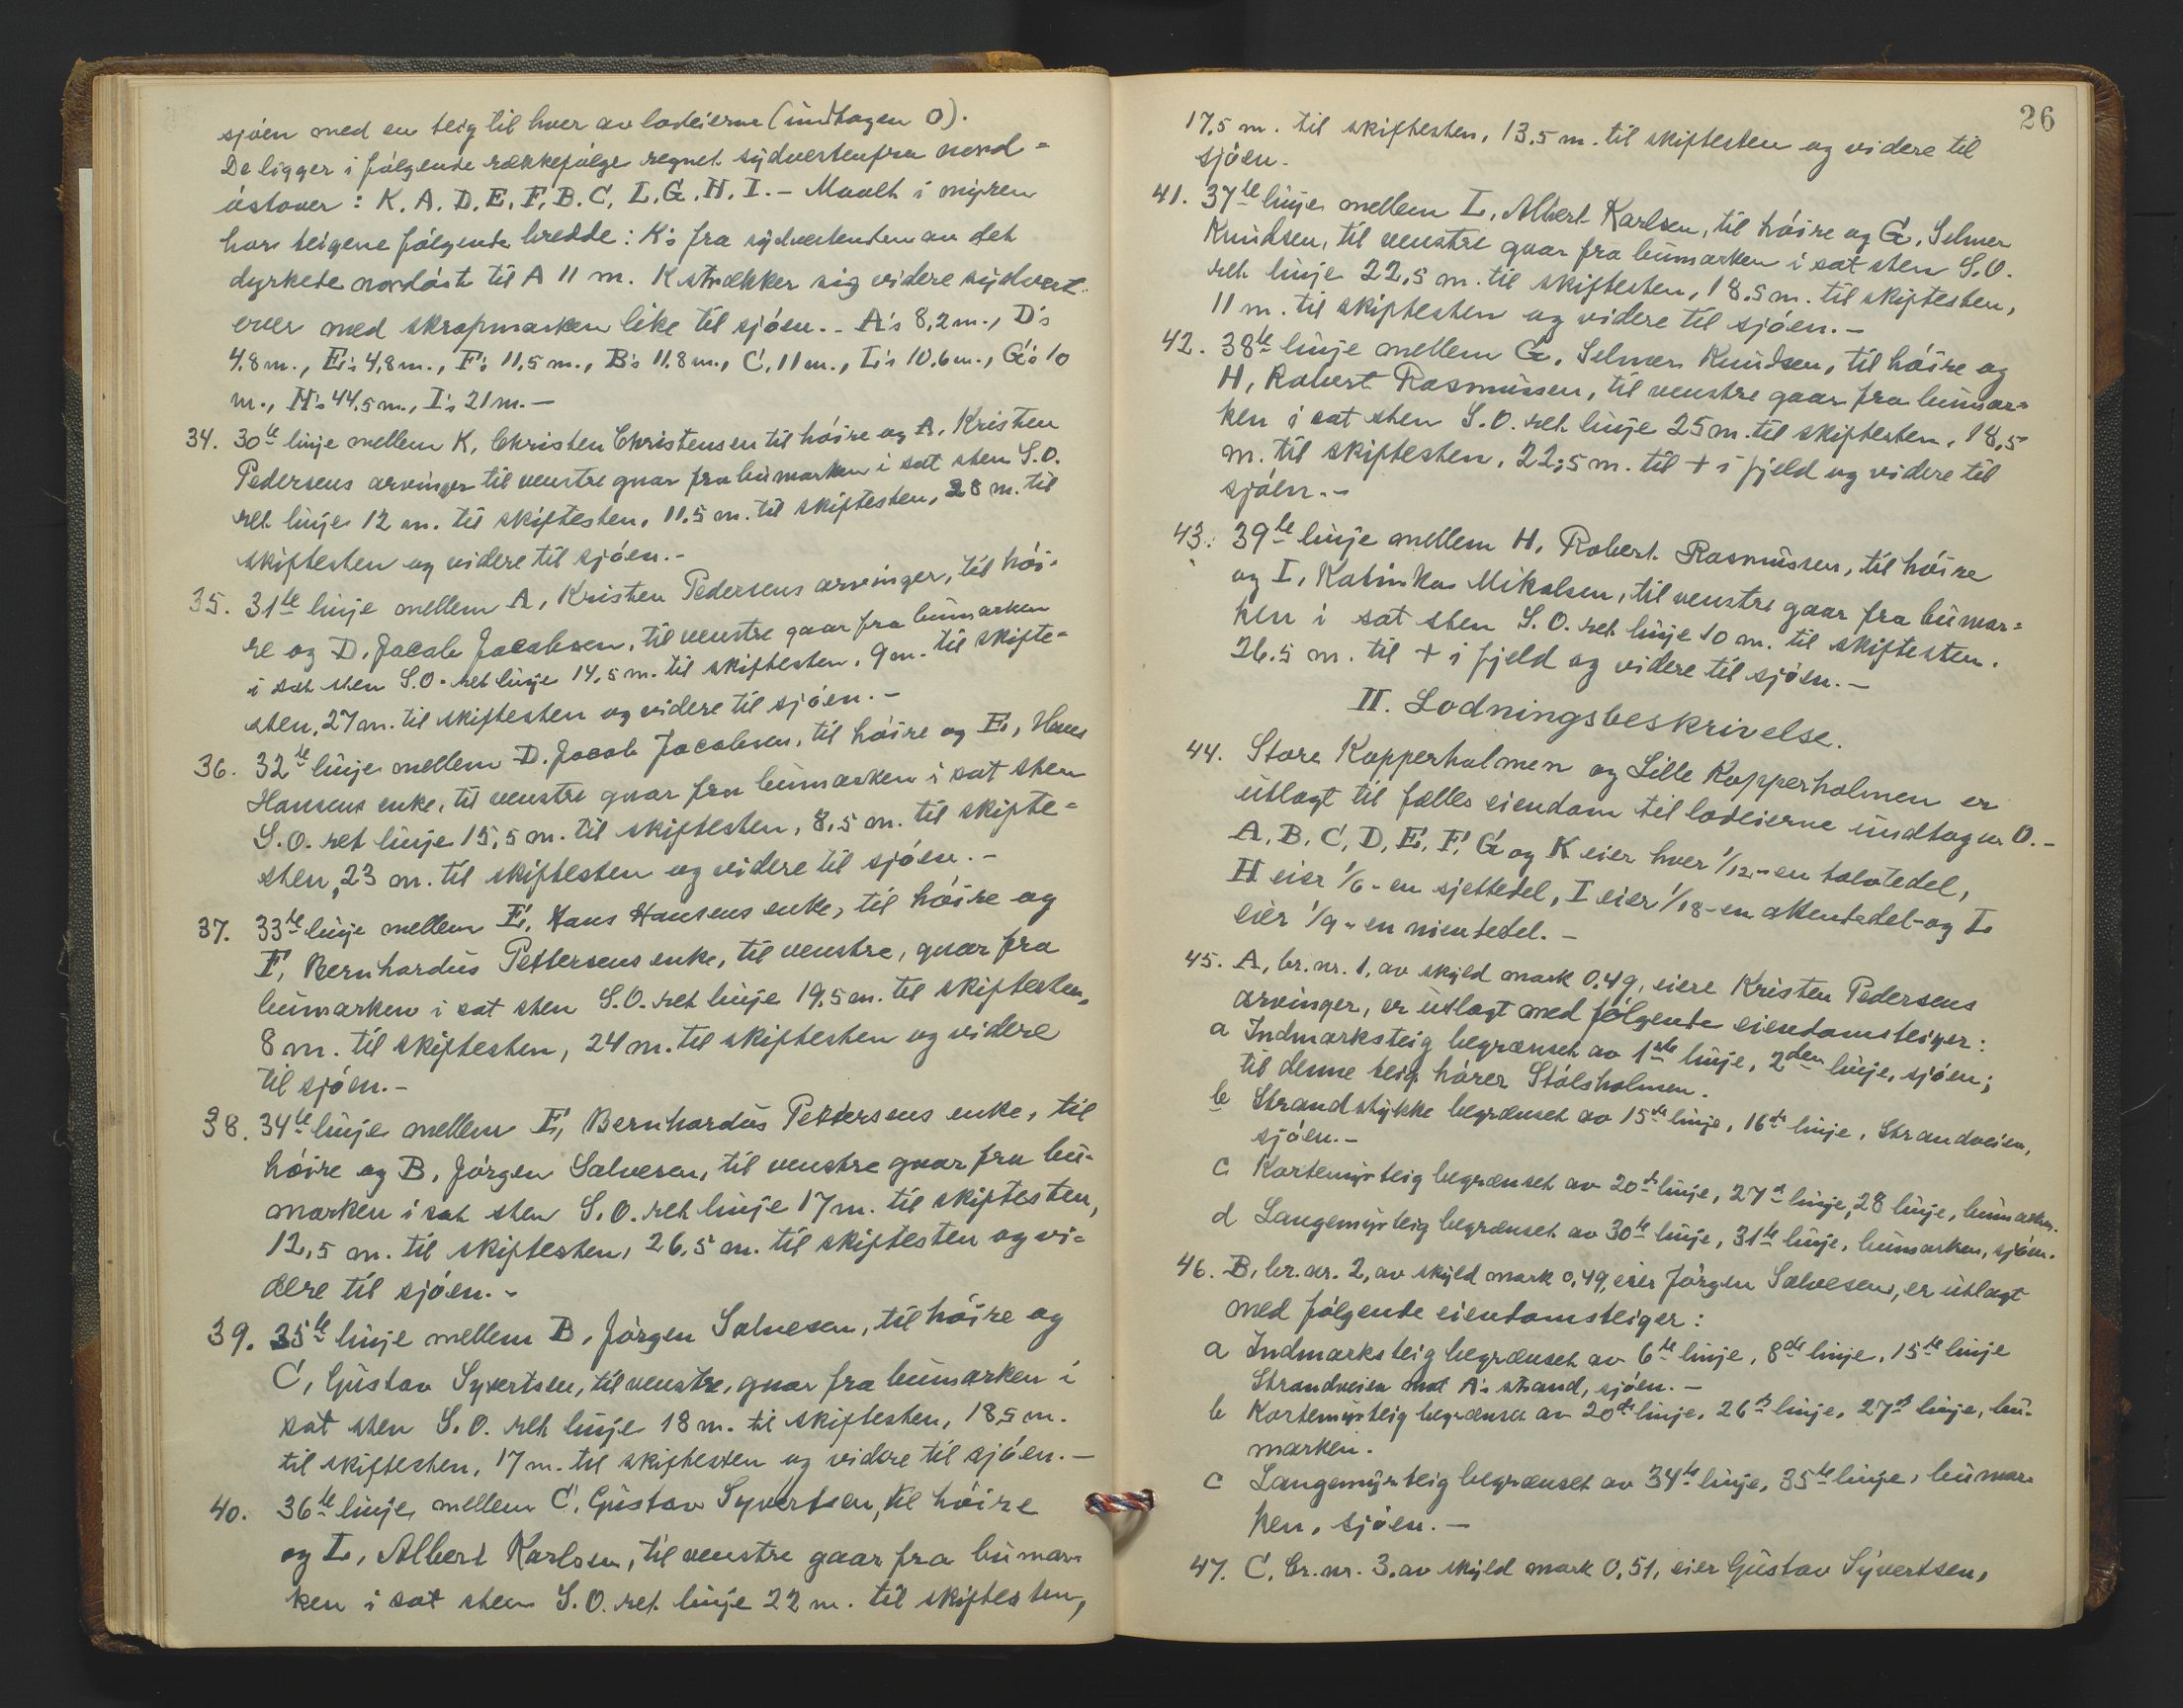 sjöen med en teig til hver av lodeierne (undtagen O).
De ligger i følgende rækkefølge regnet sydvestenfra nord=
østover: K. A. D. E. F. B. C. L. G. H. I. – Maalt i myren
har teigene følgende bredde: K's fra sydvestenden av det
dyrkede nordøst til A 11 m. K strækker sig videre sydvest-
over med skrapmarken like til sjøen. – A's 8,2 m., D's
4,8 m., E's 4,8 m., F's 11,5 m., B's 11,8 m., C, 11 m., L's 10,6 m., G's 10
m., H's 44,5 m., I's 21 m. –
34. 30te linje mellem K, Christen Christensen til høire og A, Kristen
Pedersens arvinger til venstre gaar fra bumarken i sat sten S.O.
ret linje 12 m. til skiftesten, 11,5 m. til skiftesten, 28 m. til
skiftesten og videre til sjøen. –
35. 31te linje mellem A, Kristen Pedersens arvinger, til høi-
re og D. Jacob Jacobsen, til venstre gaar fra bumarken
i sat sten S.O. ret linje 14,5 m. til skiftesten, 9 m. til skifte=
sten, 27 m. til skiftesten og videre til sjøen. –
36. 32te linje mellem D. Jacob Jacobsen, til høire og E, Hans
Hansens enke, til venstre gaar fra bumarken i sat sten
S.O. ret linje 15,5 m. til skiftesten, 8,5 m. til skifte=
sten, 23 m. til skiftesten og videre til sjøen. –
37. 33te linje mellem E, Hans Hansens enke, til høire og
F, Bernhardus Pettersens enke, til venstre, gaar fra
bumarken i sat sten S.O. ret linje 19,5 m. til skiftesten,
8 m. til skiftesten, 24 m. til skiftesten og videre
til sjøen. –
38. 34te linje mellem F, Bernhardus Pettersens enke, til
høire og B, Jørgen Salvesen, til venstre gaar fra bu-
marken i sat sten S.O. ret linje 17 m. til skiftesten,
12,5 m. til skiftesten, 26,5 m. til skiftesten og vi=
dere til sjøen. –
39. 35te linje mellem B, Jørgen Salvesen, til høire og
C, Gustav Syvertsen, til venstre, gaar fra bumarken i
sat sten S.O. ret linje 18 m. til skiftesten, 18,5 m.
til skiftesten, 17 m. til skiftesten og videre til sjøen. –
40. 36te linje mellem C, Gustav Syvertsen, til høire
og L, Albert Karlsen, til venstre gaar fra bumar=
ken i sat sten S.O. ret linje 22 m. til skiftesten,
26
17,5 m. til skiftesten, 13,5 m. til skiftesten og videre til
sjøen.
41. 37te linje mellem L, Albert Karlsen, til høire og G, Selmer
Knudsen, til venstre gaar fra bumarken i sat sten S.O.
ret linje 22,5 m. til skiftesten, 18,5 m. til skiftesten,
11 m. til skiftesten og videre til sjøen. –
42. 38te linje mellem G, Selmer Knudsen, til høire og
H, Robert Rasmussen, til venstre gaar fra bumar=
ken i sat sten S.O. ret linje 25 m. til skiftesten, 18,5
m. til skiftesten, 22,5 m. til + i fjeld og videre til
sjøen. –
43. 39te linje mellem H, Robert Rasmussen, til høire
og I, Katinka Mikalsen, til venstre gaar fra bumar=
ken i sat sten S.O. ret linje 10 m. til skiftesten.
26,5 m. til + i fjeld og videre til sjøen. –
II. Lodningsbeskrivelse.
44. Store Kopperholmen og Lille Kopperholmen er
utlagt til fælles eiendom til lodeierne undtagen O. –
A, B, C, D, E, F, G og K eier hver 1/12 – en tolvtedel,
H eier 1/6 – en sjettedel, I eier 1/18 – en attendedel – og L
eier 1/9 – en niendedel. –
45. A, br. nr. 1, av skyld mark 0,49, eiere Kristen Pedersens
arvinger, er utlagt med følgende eiendomsteiger:
a Indmarksteig begrænset av 1ste linje, 2den linje, sjøen;
til denne teig hører Stølsholmen.
b Strandstykke begrænset av 15de linje, 16de linje, Strandveien,
sjøen. –
c Kortemyrteig begrænset av 20de linje, 27de linje, 28 linje, bumarken.
d Langemyrteig begrænset av 30te linje, 31te linje, bumarken, sjøen.
46. B, br. nr. 2, av skyld mark 0,49, eier Jørgen Salvesen, er utlagt
med følgende eiendomsteiger:
a Indmarksteig begrænset av 6te linje, 8de linje, 15te linje
Strandveien mot A's strand, sjøen. –
b Kortemyrteig begrænset av 20de linje, 26de linje, 27de linje, bu-
marken.
c Langemyrteig begrænset av 34te linje, 35te linje, bumar=
ken, sjøen. –
47. C, br. nr. 3, av skyld mark 0,51, eier Gustav Syvertsen,